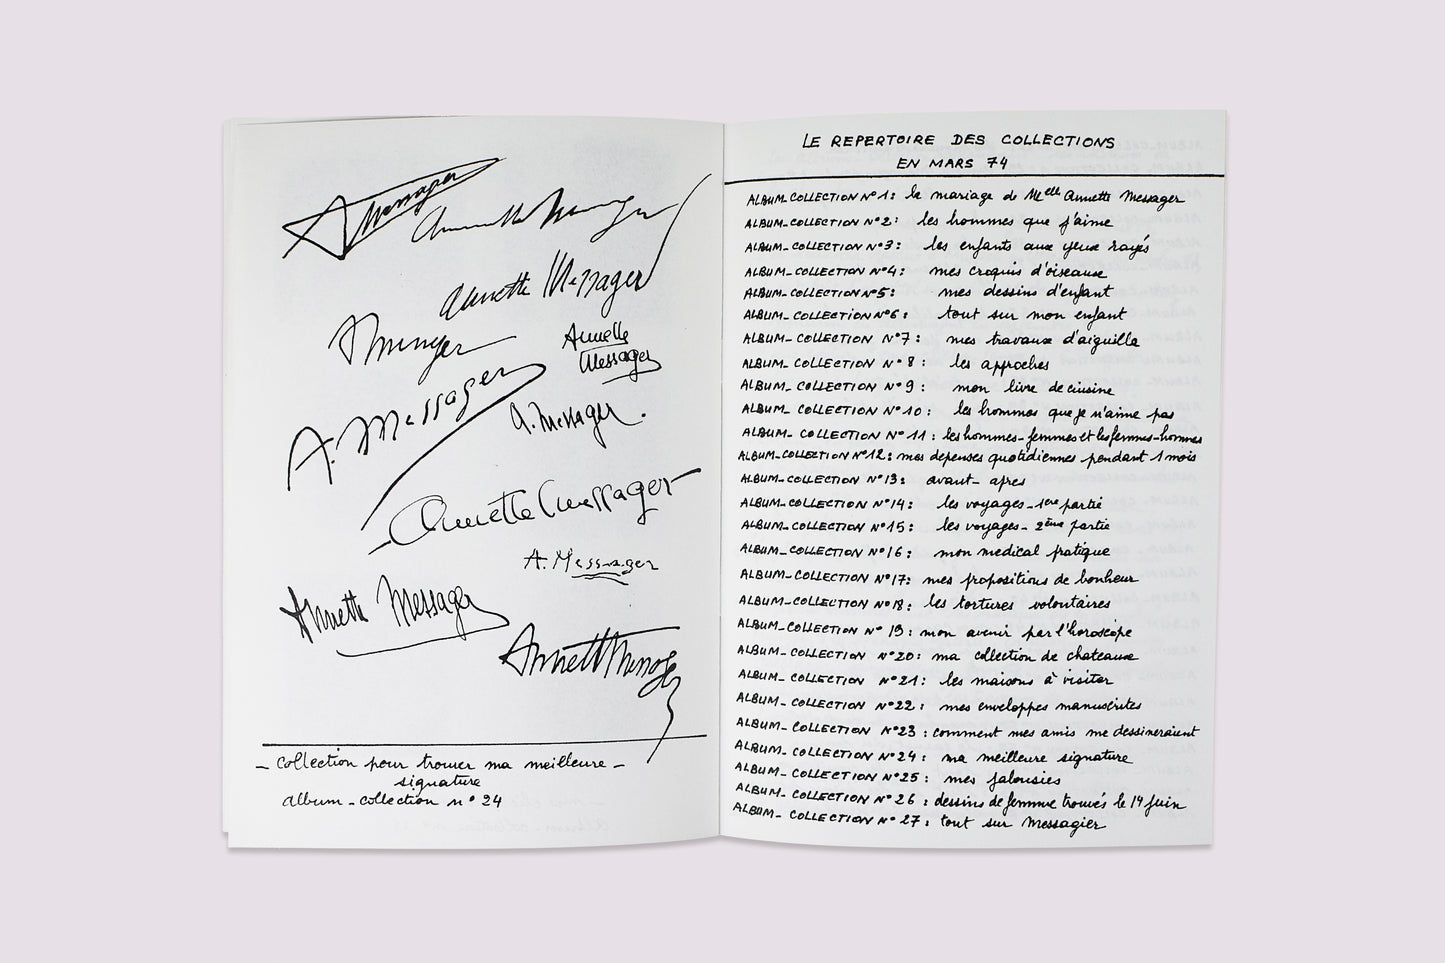 A Messager
Annette Messager
Annette Messager
A Messager
Annette
Messager
A. Messager
a. Messager.
Annette Messager
A. Messager
Annette Messager
Annette Messager
_ collection pour trouver ma meilleure _
signature
album_collection n° 24
LE REPERTOIRE DES COLLECTIONS
EN MARS 74
ALBUM_COLLECTION N°1: le mariage de Melle Annette Messager
ALBUM_COLLECTION N°2: les hommes que j'aime
ALBUM_COLLECTION N°3: les enfants aux yeux rayés
ALBUM_COLLECTION N°4: mes croquis d'oiseaux
ALBUM_COLLECTION N°5: mes dessins d'enfant
ALBUM_COLLECTION N°6: tout sur mon enfant
ALBUM_COLLECTION N°7: mes travaux d'aiguille
ALBUM_COLLECTION N°8: les approches
ALBUM_COLLECTION N°9: mon livre de cuisine
ALBUM_COLLECTION N°10: les hommes que je n'aime pas
ALBUM_COLLECTION N°11: les hommes-femmes et les femmes-hommes
ALBUM_COLLECTION N°12: mes depenses quotidiennes pendant 1 mois
ALBUM_COLLECTION N°13: avant_apres
ALBUM_COLLECTION N°14: les voyages_1ere partie
ALBUM_COLLECTION N°15: les voyages_2ème partie
ALBUM_COLLECTION N°16: mon medical pratique
ALBUM_COLLECTION N°17: mes propositions de bonheur
ALBUM_COLLECTION N°18: les tortures volontaires
ALBUM_COLLECTION N°19: mon avenir par l'horoscope
ALBUM_COLLECTION N°20: ma collection de chateaux
ALBUM_COLLECTION N°21: les maisons à visiter
ALBUM_COLLECTION N°22: mes enveloppes manuscrites
ALBUM_COLLECTION N°23: comment mes amis me dessineraient
ALBUM_COLLECTION N°24: ma meilleure signature
ALBUM_COLLECTION N°25: mes jalousies
ALBUM_COLLECTION N°26: dessins de femme trouvés le 14 juin
ALBUM_COLLECTION N°27: tout sur Messagier